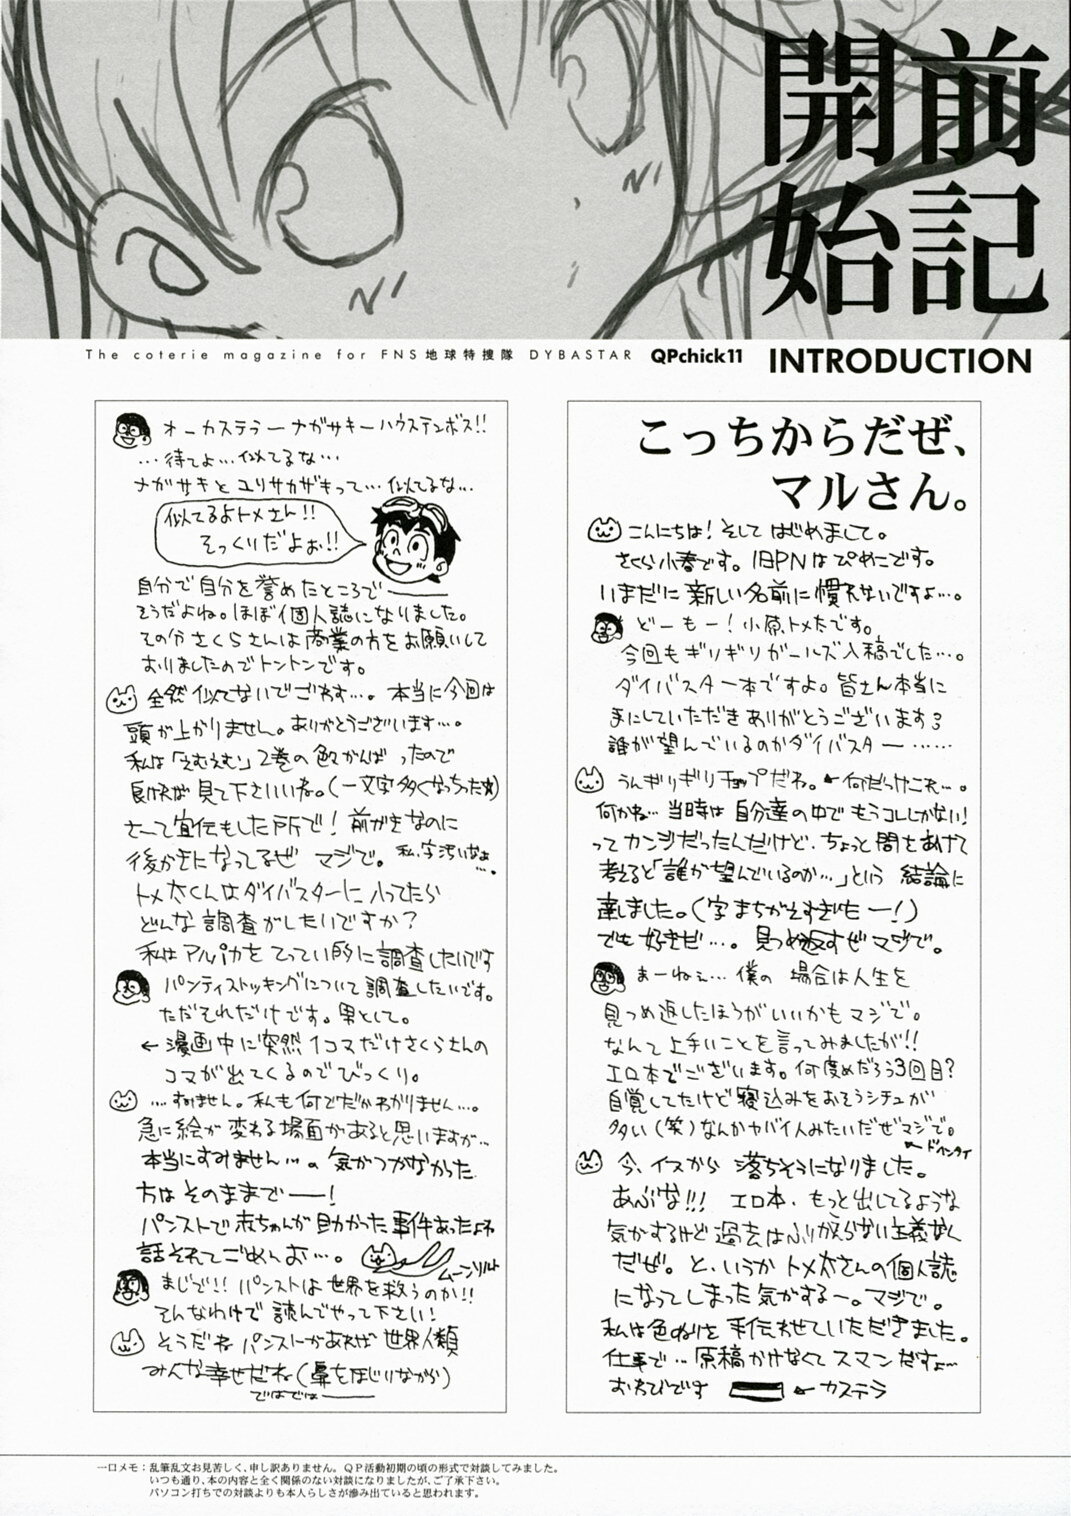 前記
開始
The coterie magazine for FNS地球特捜隊 DYBASTAR QPchick11 INTRODUCTION
こっちからだぜ、
マルさん。
こんにちは!そしてはじめまして。
さくら小春です。旧PNはぴめこです。
いまだに新しい名前に慣れないですよ…。
どーもー!小原トメ太です。
今回もギリギリガールズ入稿でした…。
ダイバスター本ですよ。皆さん本当に
手にしていただきありがとうございます
誰が望んでいるのかダイバスター……
うんギリギリチョップだわ。←何だっけこれ…。
何かね…当時は自分達の中でもうコレしかない!
ってカンジだったんだけど、ちょっと間をあけて
考えると「誰が望んでいるのか…」という結論に
達しました。(字まちがえすぎたー!)
でも好きだ…。見つめ返すぜマジで。
まーねぇ…僕の場合は人生を
見つめ返したほうがいいかもマジで。
なんて上手いことを言ってみましたが!!
エロ本でございます。何度めだろう3回目?
自覚してたけど寝込みをおそうシチュが
多い(笑)なんかヤバイ人みたいだぜマジで。
←ドヘンタイ
今、イスから落ちそうになりました。
あぶな!!!エロ本、もっと出してるような
気がするけど過去はふりかえらない主義なん
だぜ。と、いうかトメ太さんの個人誌
になってしまった気がするー。マジで。
私は色ぬりを手伝わせていただきました。
仕事で…原稿かけなくてスマンだすよ〜
おわびです ←カステラ
オーカステラーナガサキーハウステンボス!!
…待てよ…似てるな…
ナガサキとユリサカザキって…似てるな…
似てるよトメさん!!
そっくりだよぉ!!
自分で自分を誉めたところで――
そうだよね。ほぼ個人誌になりました。
その分さくらさんは商業の方をお願いして
おりましたのでトントンです。
全然似てないでごわす…。本当に今回は
頭が上がりません。ありがとうございます…。
私は「えむえむ」2巻の色々がんばったので
良ければ見て下さいいね。(一文字多くなっちった)
さーて宣伝もした所で!前がきなのに
後がきになってるぜマジで。私、字汚いなぁ…。
トメ太くんはダイバスターに入ってたら
どんな調査がしたいですか?
私はアルパカをてってい的に調査したいです
パンティストッキングについて調査したいです。
ただそれだけです。男として。
←漫画中に突然1コマだけさくらさんの
コマが出てくるのでびっくり。
…すみません。私も何でだかわかりません…。
急に絵が変わる場面があると思いますが…
本当にすみません…。気がつかなかった
方はそのままで――!
パンストで赤ちゃんが助かった事件あったよね
話それてごめんお…。
ムーンソルト
まじで!!パンストは世界を救うのか!!
そんなわけで読んでやって下さい!
そうだねパンストがあれば世界人類
みんな幸せだね(鼻をほじりながら)
ではでは――
一口メモ:乱筆乱文お見苦しく、申し訳ありません。QP活動初期の頃の形式で対談してみました。
いつも通り、本の内容と全く関係のない対談になりましたが、ご了承下さい。
パソコン打ちでの対談よりも本人らしさが滲み出ていると思われます。